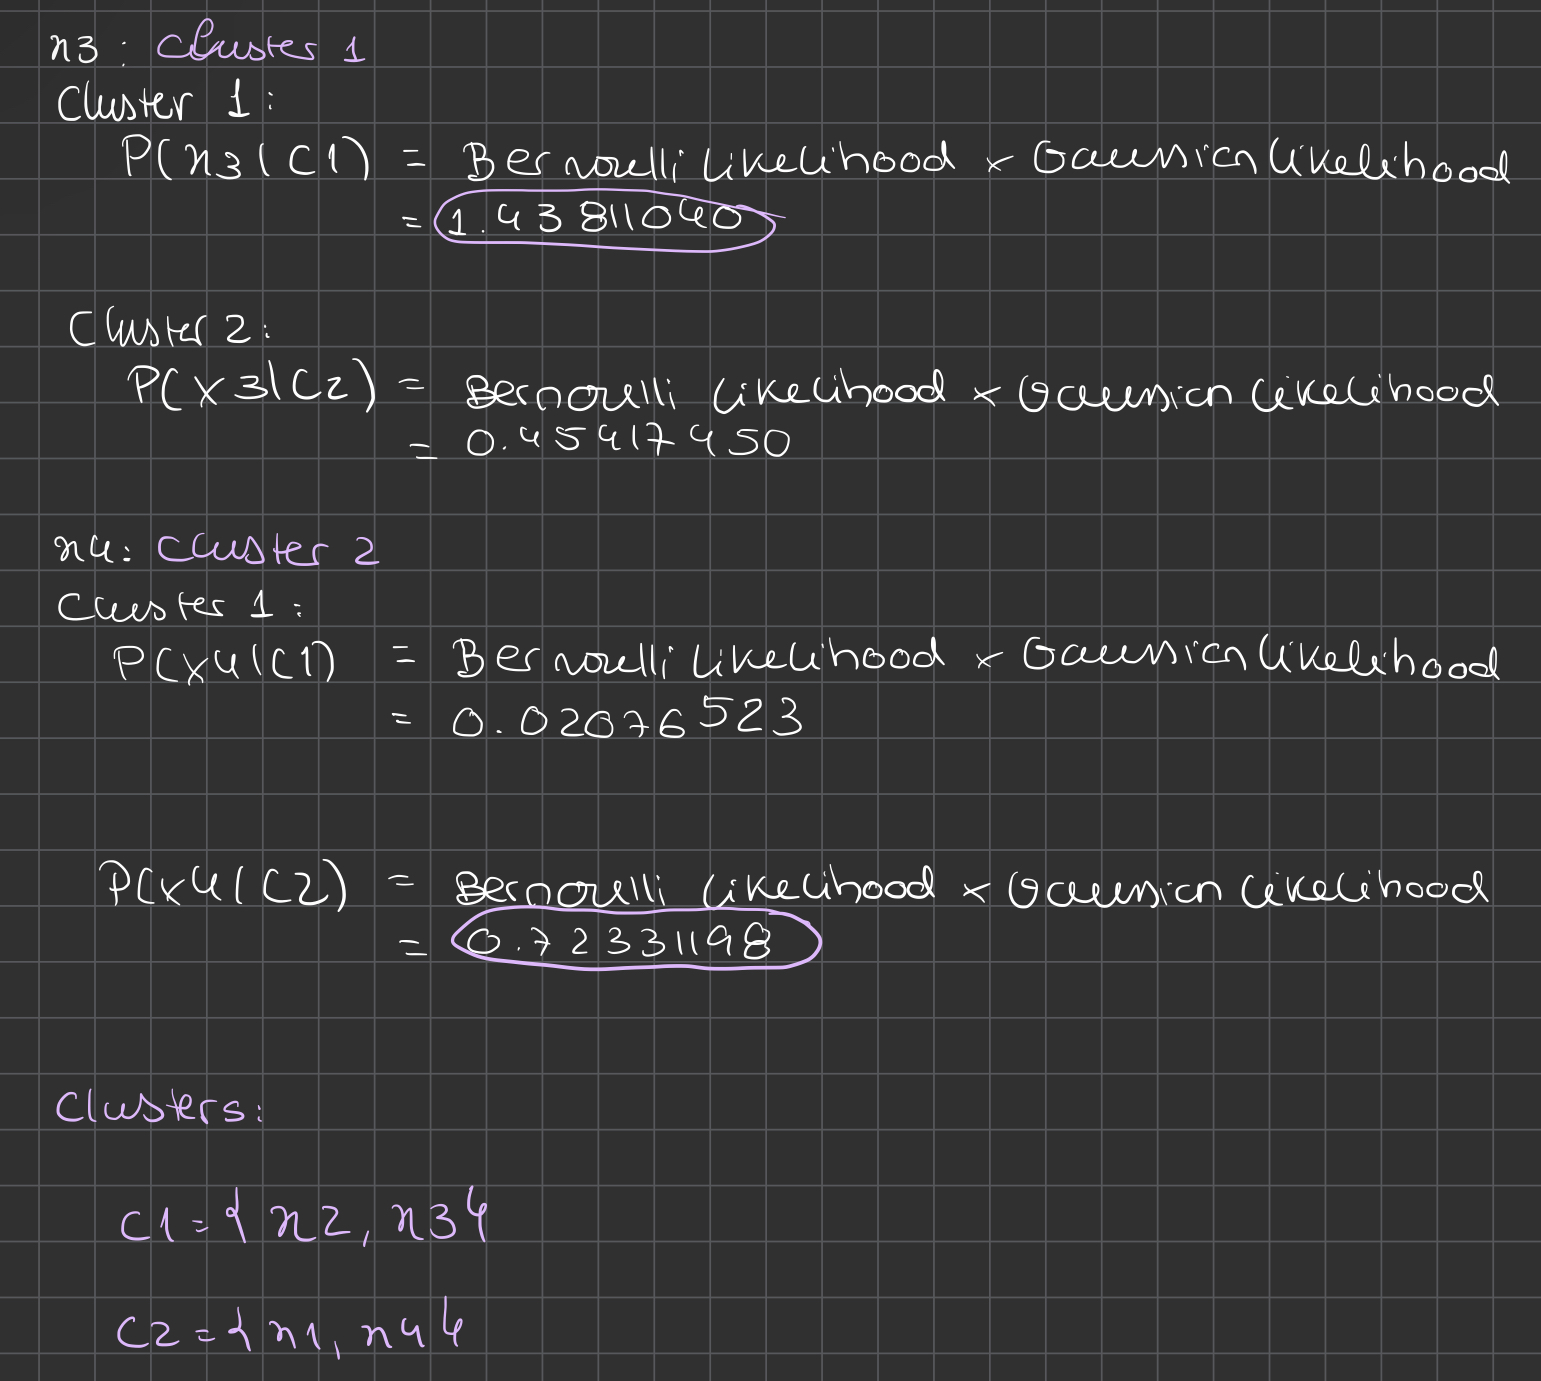 x3: Cluster 1
Cluster 1:
P(x3|C1) = Bernoulli Likelihood × Gaussian Likelihood
= 1.43811040
Cluster 2:
P(x3|C2) = Bernoulli Likelihood × Gaussian Likelihood
= 0.45417450
x4: Cluster 2
Cluster 1:
P(x4|C1) = Bernoulli Likelihood × Gaussian Likelihood
= 0.02076523
P(x4|C2) = Bernoulli Likelihood × Gaussian Likelihood
= 0.72331198
Clusters:
C1={x2, x3}
C2={x1, x4}